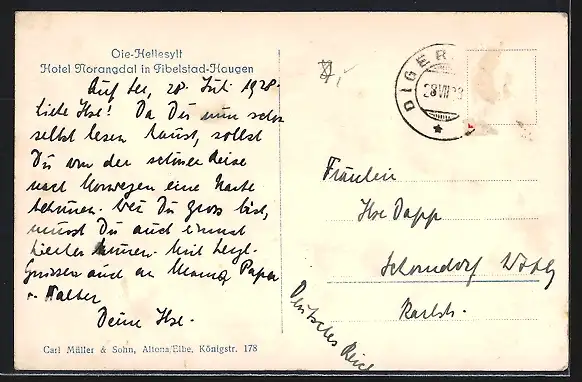 Oie-Hellesylt
Hotel Norangdal in Fibelstad-Haugen
Auf See, 28. Juli 1928.
Liebe Ilse! Da Du nun schon
selbst lesen kannst, sollst
Du von der schönen Reise
nach Norwegen eine Karte
bekommen. Wenn Du gross bist,
musst Du auch einmal
hierher kommen. Mit herzl.
Grüssen auch an Mama, Papa
u. Walter
Deine Ilse.
Carl Müller & Sohn, Altona/Elbe, Königstr. 178
DIGER
28 VII 28
Fräulein
Ilse Dapp
Schorndorf Wttbg
Karlstr.
Deutsches Reich